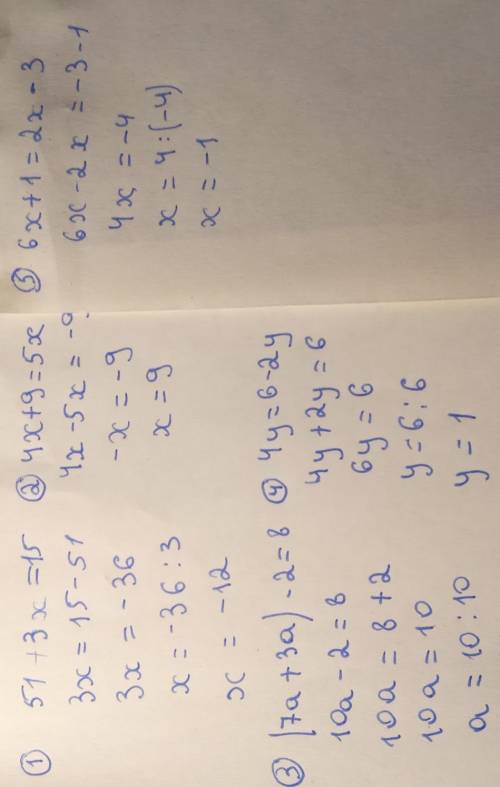 ① 51 + 3x = 15
3x = 15 - 51
3x = -36
x = -36 : 3
x = -12
② 4x + 9 = 5x
4x - 5x = -9
-x = -9
x = 9
③ (7a + 3a) - 2 = 8
10a - 2 = 8
10a = 8 + 2
10a = 10
a = 10 : 10
④ 4y = 6 - 2y
4y + 2y = 6
6y = 6
y = 6 : 6
y = 1
⑤ 6x + 1 = 2x - 3
6x - 2x = -3 - 1
4x = -4
x = 4 : (-4)
x = -1